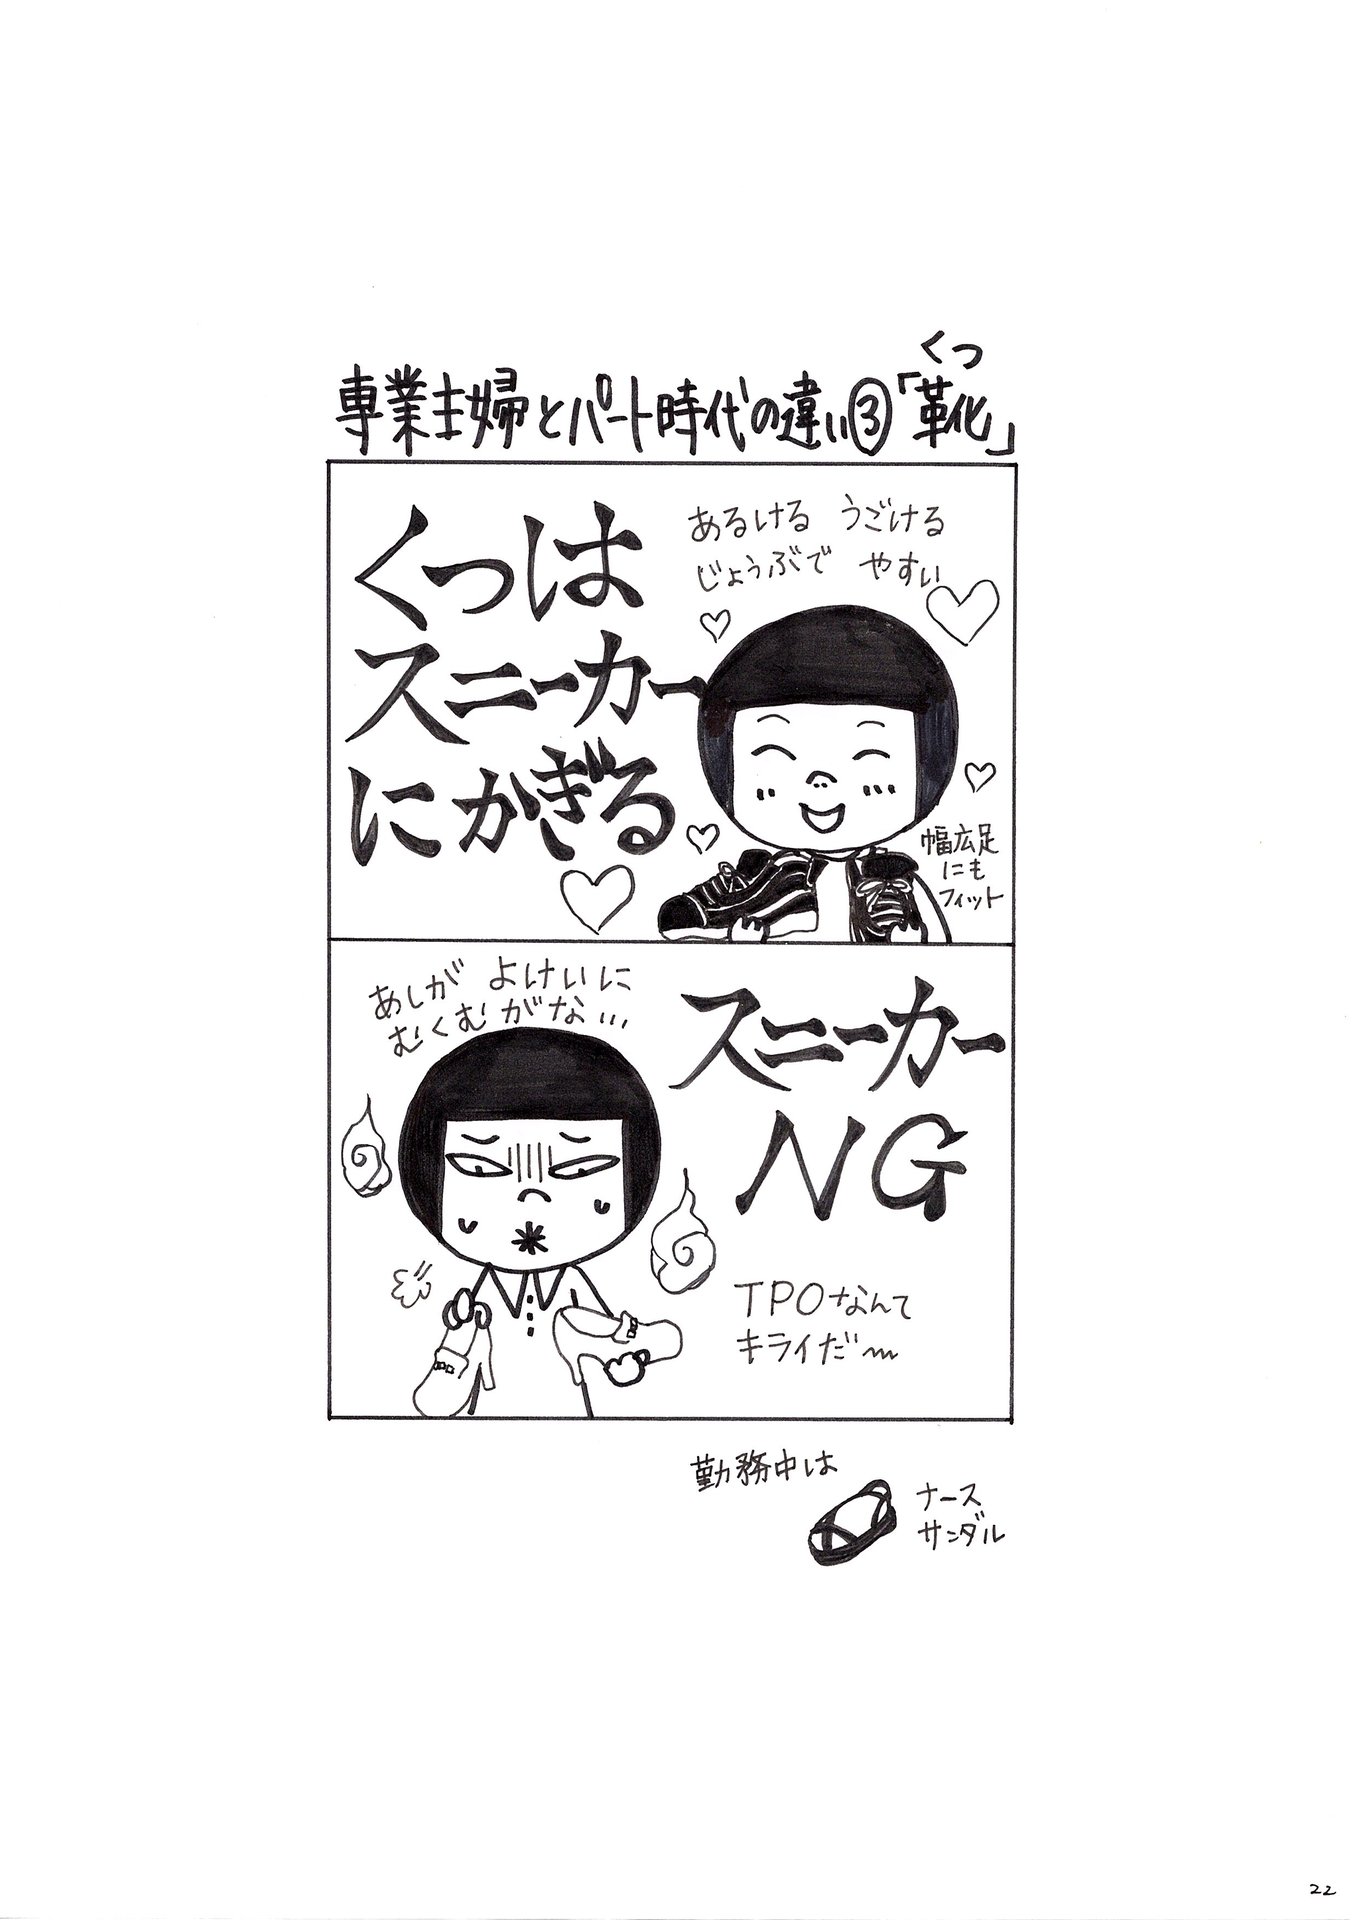 くつ
専業主婦とパート時代の違い③「靴」
くつは
スニーカー
にかぎる
あるける うごける
じょうぶで やすい
幅広足
にも
フィット
あしが よけいに
むくむがな…
スニーカー
NG
TPOなんて
キライだ〜
勤務中は
ナース
サンダル
22